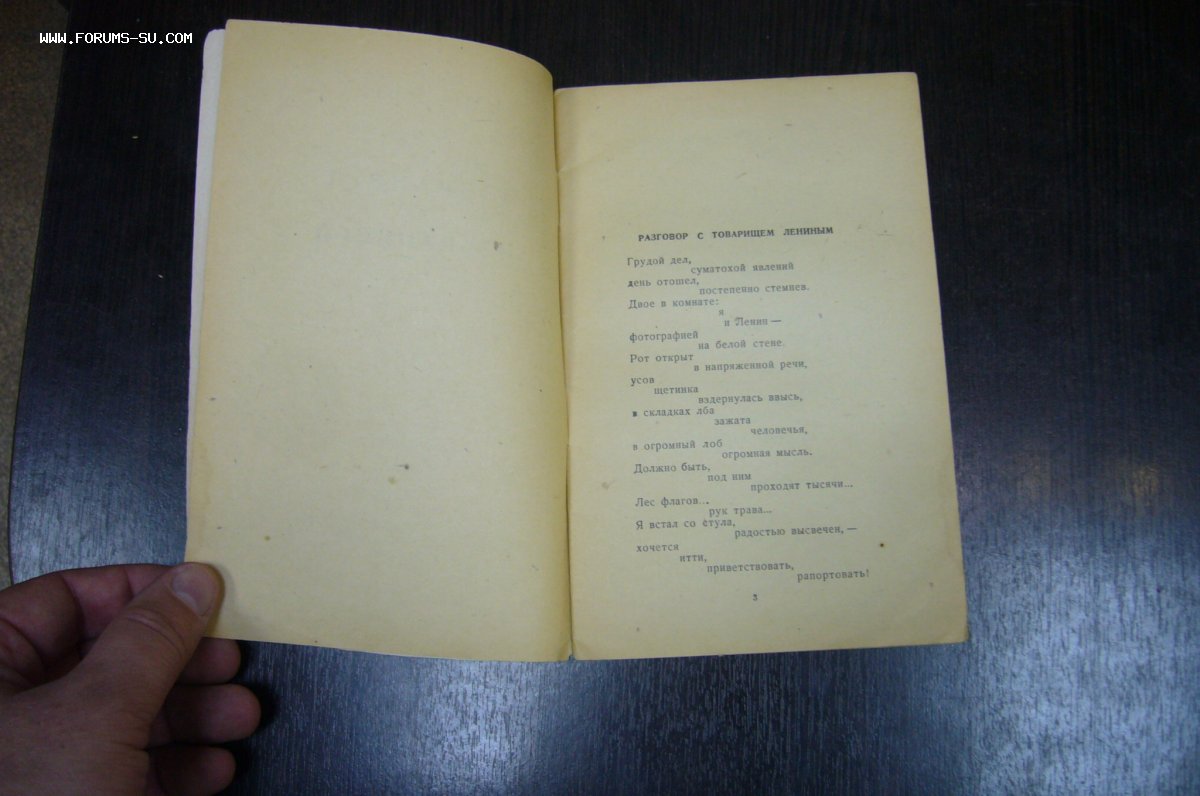 WWW.FORUMS-SU.COM
РАЗГОВОР С ТОВАРИЩЕМ ЛЕНИНЫМ
Грудой дел,
суматохой явлений
день отошел,
постепенно стемнев.
Двое в комнате:
я
и Ленин —
фотографией
на белой стене.
Рот открыт
в напряженной речи,
усов
щетинка
вздернулась ввысь,
в складках лба
зажата
человечья,
в огромный лоб
огромная мысль.
Должно быть,
под ним
проходят тысячи...
Лес флагов...
рук трава...
Я встал со стула,
радостью высвечен, —
хочется
итти,
приветствовать,
рапортовать!
3